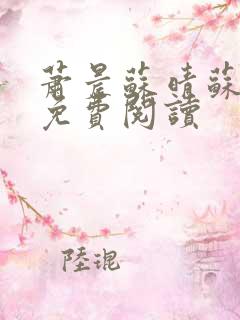 蕭景蘇晴蘇
免費閱讀
陸琨